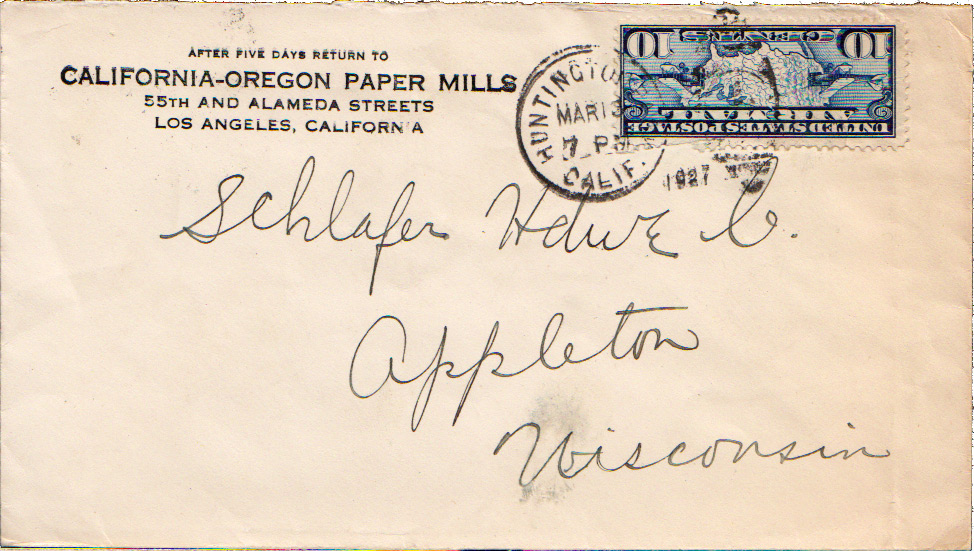 AFTER FIVE DAYS RETURN TO
CALIFORNIA-OREGON PAPER MILLS
55TH AND ALAMEDA STREETS
LOS ANGELES, CALIFORNIA
HUNTINGTON
MAR 13
7 PM
CALIF.
1927
UNITED STATES POSTAGE
AIR MAIL
CENTS
10 10
Schlafer Hdwe Co.
Appleton
Wisconsin